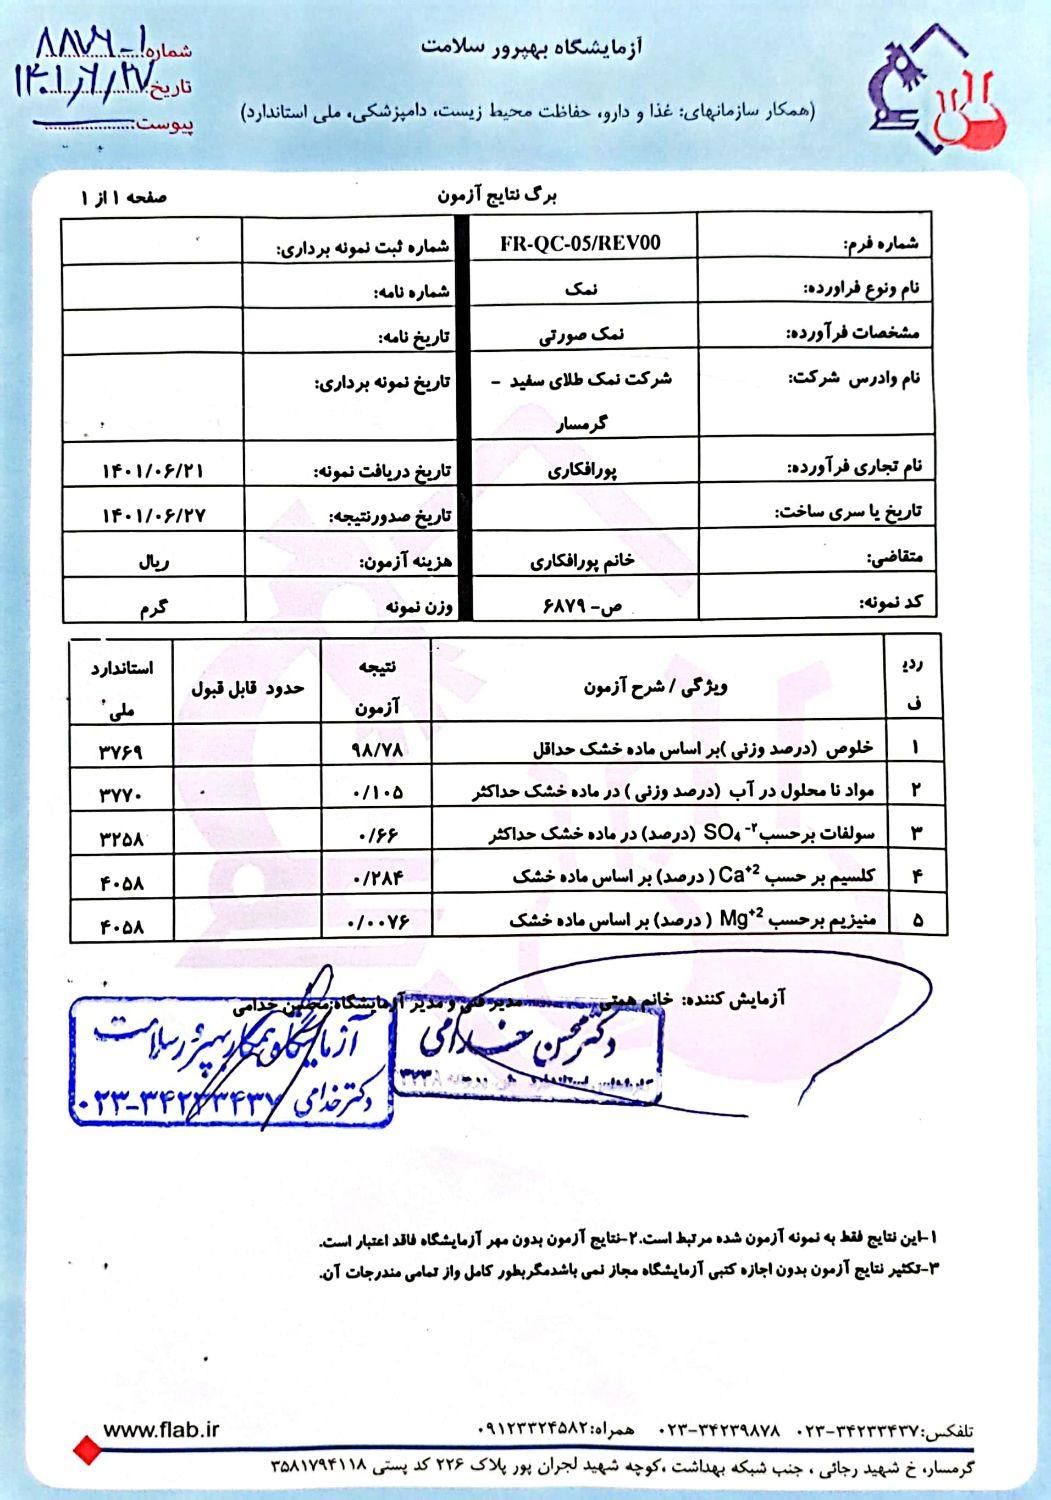 آزمایشگاه بهپرور سلامت
(همکار سازمانهای: غذا و دارو، حفاظت محیط زیست، دامپزشکی، ملی استاندارد)
شماره: ۸۸۷۶-۱
تاریخ: ۱۴۰۱/۶/۲۷
پیوست:
برگ نتایج آزمون
صفحه ۱ از ۱
شماره فرم: FR-QC-05/REV00 شماره ثبت نمونه برداری:
نام ونوع فراورده: نمک شماره نامه:
مشخصات فرآورده: نمک صورتی تاریخ نامه:
نام وادرس شرکت: شرکت نمک طلای سفید – تاریخ نمونه برداری:
گرمسار
نام تجاری فرآورده: پورافکاری تاریخ دریافت نمونه: ۱۴۰۱/۰۶/۲۱
تاریخ یا سری ساخت: تاریخ صدورنتیجه: ۱۴۰۱/۰۶/۲۷
متقاضی: خانم پورافکاری هزینه آزمون: ریال
کد نمونه: ص- ۶۸۷۹ وزن نمونه گرم
ردیف ویژگی / شرح آزمون نتیجه آزمون حدود قابل قبول استاندارد ملی
۱ خلوص (درصد وزنی )بر اساس ماده خشک حداقل ۹۸/۷۸ ۳۷۶۹
۲ مواد نا محلول در آب (درصد وزنی ) در ماده خشک حداکثر ۰/۱۰۵ ۳۷۷۰
۳ سولفات برحسب SO₄⁻² (درصد) در ماده خشک حداکثر ۰/۶۶ ۳۲۵۸
۴ کلسیم بر حسب Ca⁺² ( درصد) بر اساس ماده خشک ۰/۲۸۴ ۴۰۵۸
۵ منیزیم برحسب Mg⁺² ( درصد) بر اساس ماده خشک ۰/۰۰۷۶ ۴۰۵۸
آزمایش کننده: خانم همتی مدیر فنی و مدیر آزمایشگاه: محسن خدامی
دکتر محسن خدامی
۳۲۳۸
آزمایشگاه همکار بهپرور سلامت
دکتر خدامی ۰۲۳-۳۴۲۳۳۴۳۷
۱-این نتایج فقط به نمونه آزمون شده مرتبط است.۲-نتایج آزمون بدون مهر آزمایشگاه فاقد اعتبار است.
۳-تکثیر نتایج آزمون بدون اجازه کتبی آزمایشگاه مجاز نمی باشدمگربطور کامل واز تمامی مندرجات آن.
تلفکس: ۰۲۳-۳۴۲۳۳۴۳۷ ۰۲۳-۳۴۲۳۹۸۷۸ همراه: ۰۹۱۲۳۳۲۴۵۸۲ www.flab.ir
گرمسار، خ شهید رجائی ، جنب شبکه بهداشت ،کوچه شهید لجران پور پلاک ۲۲۶ کد پستی ۳۵۸۱۷۹۴۱۱۸